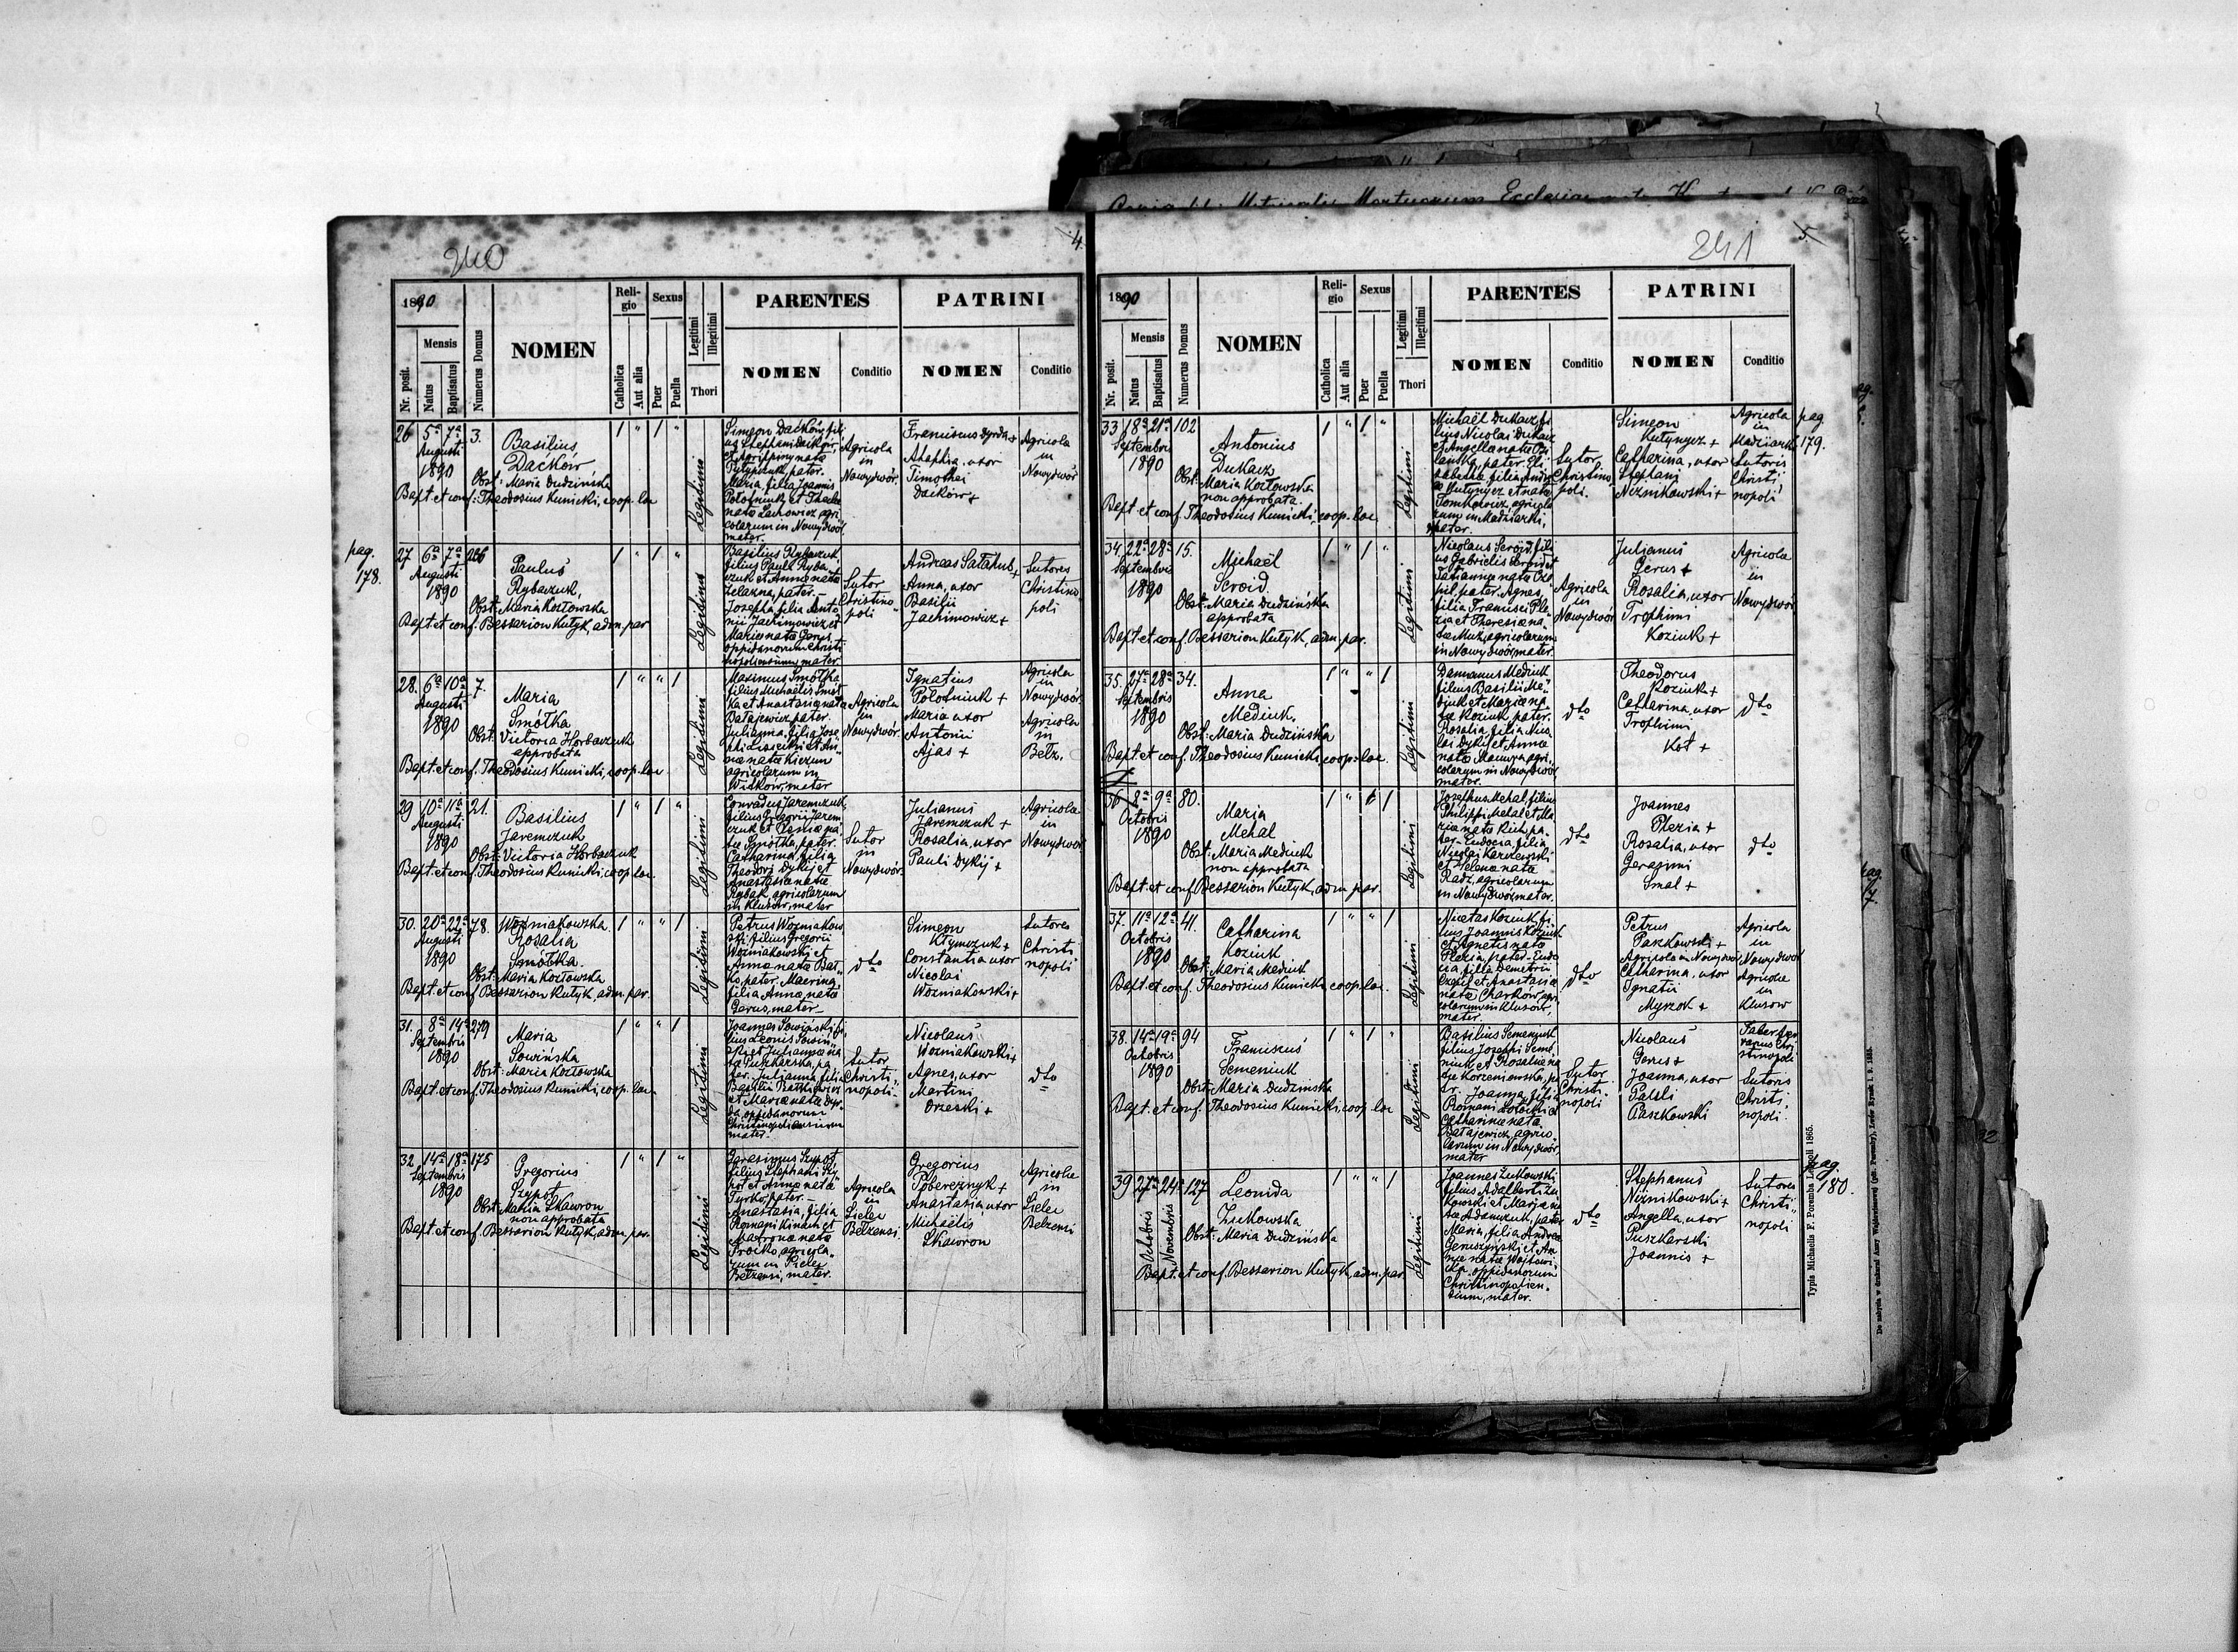 240
4.
1890
Nr. posit.
Mensis
Natus
Baptisatus
Numerus Domus
NOMEN
Reli-
gio
Catholica
Aut alia
Sexus
Puer
Puella
Legitimi
Illegitimi
Thori
PARENTES
NOMEN
Conditio
PATRINI
NOMEN
Conditio
26 5a 7a 3.
Augusti
1890
Basilius
Dacków
Obst: Maria Dudzińska
Bapt. et conf: Theodosius Kunicki, coop. loc
Legitimi
Simeon Dacków, fili
us Stephani Dacków
et Agrippiny nata
Pylypczuk, pater.
Maria, filia Joannis
Połotniuk et Theclæ
nata Lachowicz, agri
colarum in Nowydwór.
mater.
Agricola
in
Nowydwór
Franciscus Dyrda +
Agaphia, uxor
Timothei
Dacków +
Agricola
in
Nowydwór
pag.
178.
27 6a 7a 266
Augusti
1890
Paulus
Rybaczuk,
Obst: Maria Kozłowska
Bapt. et conf: Bessarion Kutyk, adm. par
Legitimi
Basilius Rybaczuk
filius Pauli Ryba
czuk et Annæ nata
Zelazna, pater. –
Josepha filia Anto
nii Jachimowicz et
Mariæ nata Gerus, +
oppidanorum Christi
nopoliensium, mater.
Sutor
Christino
poli
Andreas Sałahub +
Anna, uxor
Basilii
Jachimowicz +
Sutores
Christino
poli
28. 6a 10a 7.
Augusti
1890
Maria
Smółka
Obst: Victoria Horbaczuk
approbata
Bapt. et conf. Theodosius Kunicki, coop. loc
Legitimi
Maximus Smółka
filius Michaelis Smół
ka et Anastasiæ nata
Batajewicz, pater.
Julianna, filia Jose
phi Lisiecki et An
næ nata Kiczun
agricolarum in
Witków, mater
Agricola
in
Nowydwór.
Ignatius
Połotniuk +
Maria uxor
Antonii
Ajas +
Agricola
in
Nowydwór.
Agricola
in
Bełz.
29 10a 11a 21.
Augusti
1890
Basilius
Jaremczuk
Obst: Victoria Horbaczuk
Bapt. et conf. Theodosius Kunicki, coop. loc.
Legitimi
Conradus Jaremczuk,
filius Gregorii Jarem
czuk et Xeniæ na
tæ Smółka, pater.
Catharina, filia
Theodori Dykij et
Anastasiæ nata
Rybak agricolarum
in Klusów, mater
Sutor
in
Nowydwór.
Julianus
Jaremczuk +
Rosalia, uxor
Pauli Dykij +
Agricola
in
Nowydwór
30. 20a 22a 78.
Augusti
1890
Woźniakowska
Rosalia
Smółka.
Obst: Maria Kozłowska
Bapt. et conf Bessarion Kutyk, adm. par.
Legitimi
Petrus Woźniakow
ski, filius Gregorii
Woźniakowski et
Annæ nata Bat
ko, pater. Macrina,
filia Annæ, nata
Gerus, mater –
dto
Simeon
Kłymczuk +
Constantia uxor
Nicolai
Woźniakowski +
Sutores
Christi
nopoli
31. 8a 14a 279
Septembris
1890
Maria
Sowińska
Obst: Maria Kozłowska
Bapt. et conf. Theodosius Kunicki, coop. loc
Legitimi
Joannes Sowiński, fi
lius Leonis Sowiń
ski et Juliannæ na
ta Puszkarska, pa
ter. Julianna, filia
et Mariæ nata Dyr
da, oppidanorum
Christinopoliensium
mater.
Sutor
Christi
nopoli
Nicolaus
Woźniakowski +
Agnes, uxor
Martini
Orzeski +
dto
32 14a 18a 175
Septembris
1890
Gregorius
Szypot
Obst: Maria Skawron
non approbata
Bapt. et conf. Bessarion Kutyk, adm. par.
Legitimi
Gerasimus Szypot
filius Stephani Szy
pot et Annæ nata
Tyrko, pater. –
Anastasia, filia
Romani Kindrat et
Matronæ nata
Trocko, agricola
rum in Sielec
Bełzensi, mater.
Agricola
in
Sielec
Bełzensi.
Gregorius
Pobereznyk +
Anastasia, uxor
Michaelis
Skawron
Agricolæ
in
Sielec
Bełzensi
241
5.
1890
Nr. posit.
Mensis
Natus
Baptisatus
Numerus Domus
NOMEN
Reli-
gio
Catholica
Aut alia
Sexus
Puer
Puella
Legitimi
Illegitimi
Thori
PARENTES
NOMEN
Conditio
PATRINI
NOMEN
Conditio
33 18a 21a 102
Septembris
1890
Antonius
Dukacz
Obst: Maria Kozłowska
non approbata.
Bapt et conf Theodosius Kunicki, coop. loc
Legitimi
Michaël Dukacz, fi
lius Nicolai Dukacz
lańska, pater. Eli
sabetha, filia Andre
æ Kutynycz et nata
Tomkiewicz, agricola
rum in Madziarki,
mater.
Sutor
Christino
poli.
Simeon
Kutynycz +
Catherina, uxor
Stephani
Niżnikowski +
Agricola
in
Madziarki
Sutoris
Christi
nopoli
pag
179.
34. 22a 28a 15.
Septembris
1890
Michaël
Seroid.
Obst: Maria Dudzińska
approbata
Bapt. et conf. Bessarion Kutyk, adm. par.
Legitimi
Nicolaus Seroid, fili
us Gabrielis Seroid et
pater. Agnes,
filia Francisci Ple
zia et Theresiæ na
tæ Muz, agricolarum
in Nowydwór, mater.
Agricola
in
Nowydwór
Julianus
Gerus +
Rosalia, uxor
Trophimi
Koziuk +
Agricola
in
Nowydwór
35. 27a 28a 34.
Septembris
1890
Anna
Mediuk,
Obst: Maria Dudzińska
Bapt. et conf. Theodosius Kunicki, coop. loc.
Legitimi
Damianus Mediuk
filius Basilii Me
diuk et Mariæ na
tæ Koziuk, pater.
Rosalia, filia Nico
lai Dykij et Annæ
nata agri
colarum in Nowydwór
mater.
dto
Theodorus
Koziuk +
Catharina, uxor
Trophimi
Kot +
dto
36 8a 9a 80.
Octobris
1890
Maria
Mehal
Obst: Maria Mediuk
non approbata
Bapt. et conf Bessarion Kutyk, adm. par.
Legitimi
Josephus Mehal, filius
Philippi Mehal et Ma
riæ nata pa
ter – Eudocia, filia
Nicolai Karczewski
et Helenæ nata
Radz, agricolarum
in Nowydwór, mater.
dto
Joannes
Plezia +
Rosalia, uxor
Gerasimi
Smal +
dto
37. 11a 12a 41.
Octobris
1890
Catharina
Koziuk
Obst: Maria Mediuk
Bapt. et conf. Theodosius Kunicki, coop. loc.
Legitimi
Nicetas Koziuk, fi
lius Joannis Koziuk
et Agnetis nata
Plezia, pater – Eudo
cia, filia Demetrii
et Anastasiæ
nata Charków, agri
colarum in Klusów,
mater.
dto
Petrus
Paszkowski +
Agricola in Nowydwór
Catharina, uxor
Ignatii
Myszok +
Agricola
in
Nowydwór
Agricolæ
in
Klusow
38. 14a 19a 94
Octobris
1890
Franciscus
Semeniuk
Obst: Maria Dudzińska
Bapt. et conf. Theodosius Kunicki, coop. loc
Legitimi
Basilius Semeniuk
filius Josephi Seme
niuk et Rosaliæ na
tæ Korzeniowska, pa
ter. Joanna, filia
Catharinæ nata
Batajewicz, agrico
larum in Nowydwór,
mater
Sutor
Christi
nopoli
Nicolaus
Gerus +
Joanna, uxor
Pauli
Paszkowski
Faber
Chri
stinopoli
Sutoris
Christi
nopoli.
39 27a 24a 127
Octobris
Novembris
Leonida
Zukowska
Obst: Maria Dudzińska
Bapt. et conf. Bessarion Kutyk, adm. par.
Legitimi
Joannes Zukowski
filius Adalberti Zu
kowski et Marja na
tæ Adamczuk, pater
Maria, filia Andreæ
Geruszyński et An
næ nata Wojtowi
cka, oppidanorum
Christinopolien
sium, mater.
dto
Stephanus
Niżnikowski +
Angella, uxor
Puszkarski
Joannis +
Sutores
Christi
nopoli
pag.
180.
Typis Michaelis F. Poremba Leopoli 1865.